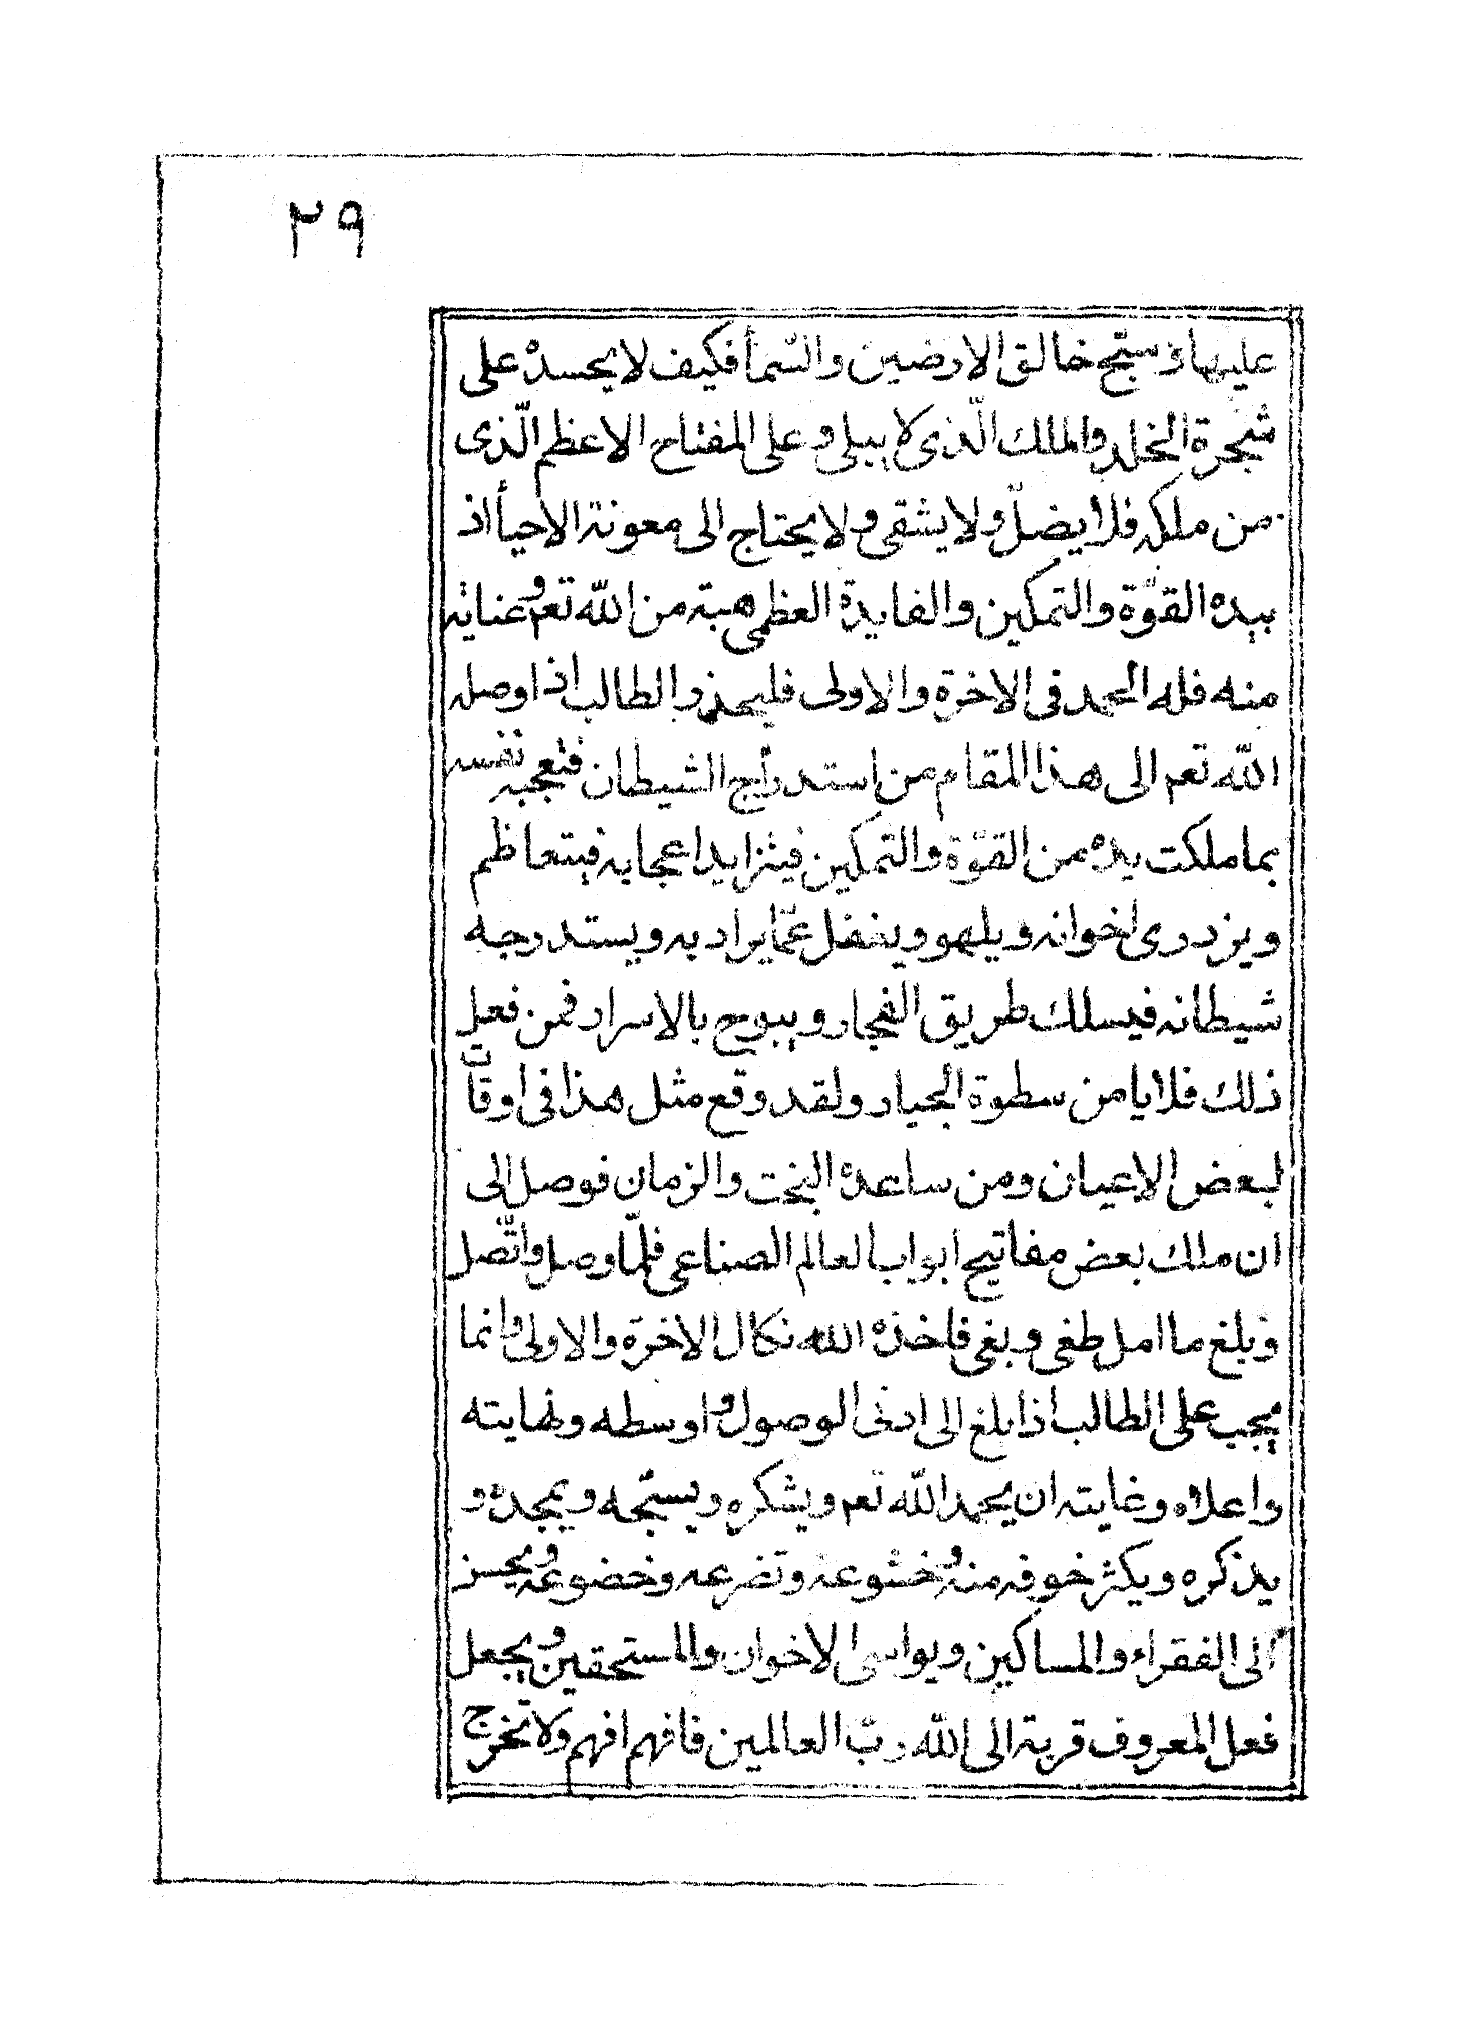 ٢٩
عليها وسبّح خالق الارضين والسّمأ فكيف لا يحسده على
شجرة الخلد والملك الّذى لا يبلى وعلى المفتاح الاعظم الّذى
من ملكه فلا يضلّ ولا يشقى ولا يحتاج الى معونة الاحيأ اذ
بيده القوّة والتمكين والفايدة العظمى هبة من اللّه تعم وعناية
منه فله الحمد فى الاخرة والاولى فليحذر الطالب اذا وصله
اللّه تعم الى هذا المقام من استدراج الشيطان فتعجبه نفسه
بما ملكت يده من القوّة والتمكين فيتزايد اعجابه فيتعاظم
ويزدرى اخوانه ويلهو ويغفل عمّا يراد به ويستدرجه
شيطانه فيسلك طريق الفجار ويبوح بالاسرار فمن فعل
ذلك فلا يامن سطوة الجبار ولقد وقع مثل هذا فى اوقات
لبعض الاعيان ومن ساعده البخت والزمان فوصل الى
ان ملك بعض مفاتيح ابواب العالم الصناعى فلمّا وصل واتّصل
وبلغ ما امل طغى وبغى فاخذه اللّه نكال الاخرة والاولى وانما
يجب على الطالب اذا بلغ الى ادنى الوصول واوسطه ونهايته
واعلاه وغايته ان يحمد اللّه تعم ويشكره ويسبّحه ويمجده و
يذكره ويكثر خوفه منه وخشوعه وتضرعه وخضوعه ويحسن
الى الفقراء والمساكين ويواسى الاخوان والمستحقين ويجعل
فعل المعروف قربة الى اللّه ربّ العالمين فافهم افهم ولا تخرج